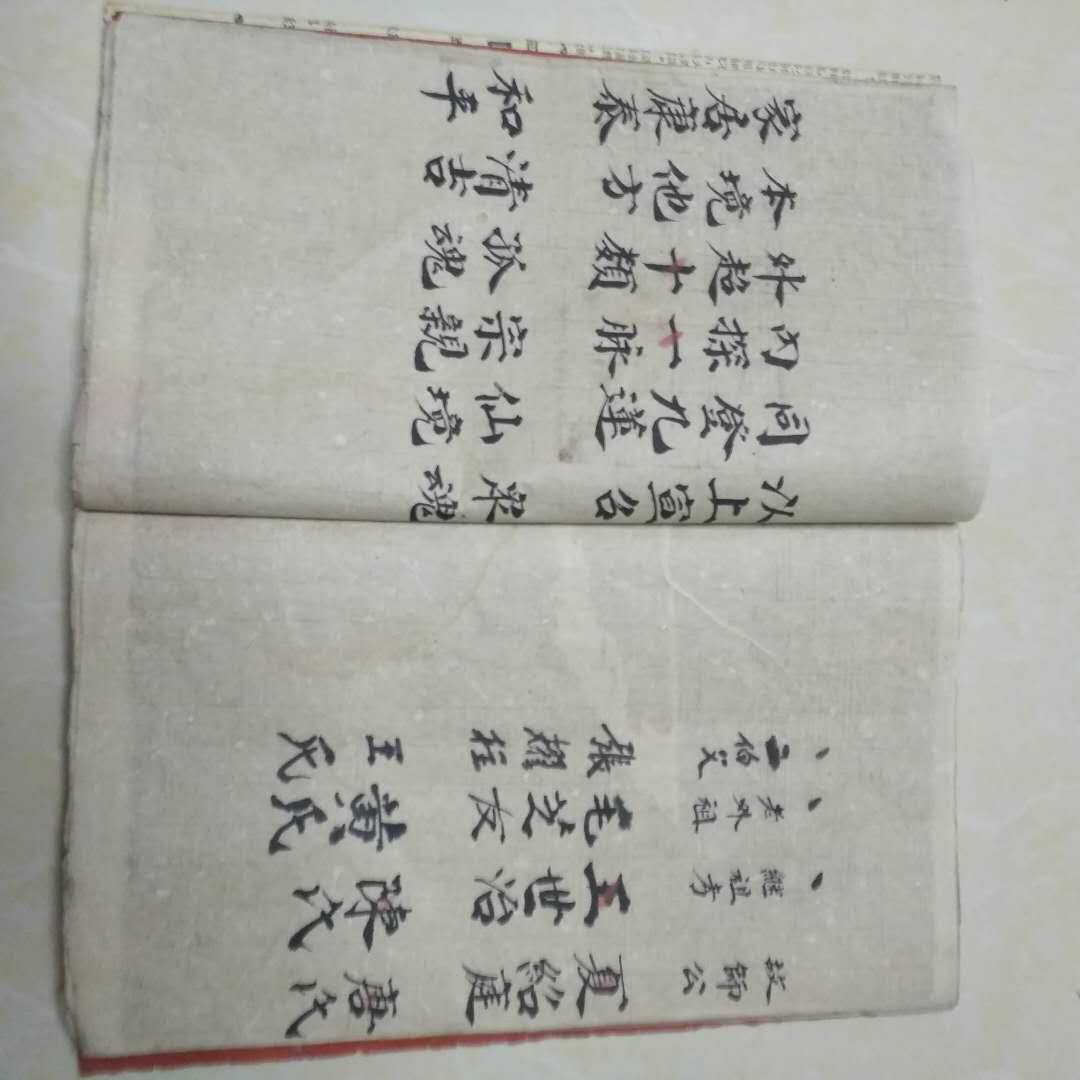 故師公 夏紹庭 唐氏
繼祖考 王世治 陳氏
老外祖 毛芝友 黃氏
伯父 張耀柱 王氏
以上宣召眾魂
同登九蓮仙境
内探一脉宗親
外超十類孤魂
本境他方清吉
家居康泰和平